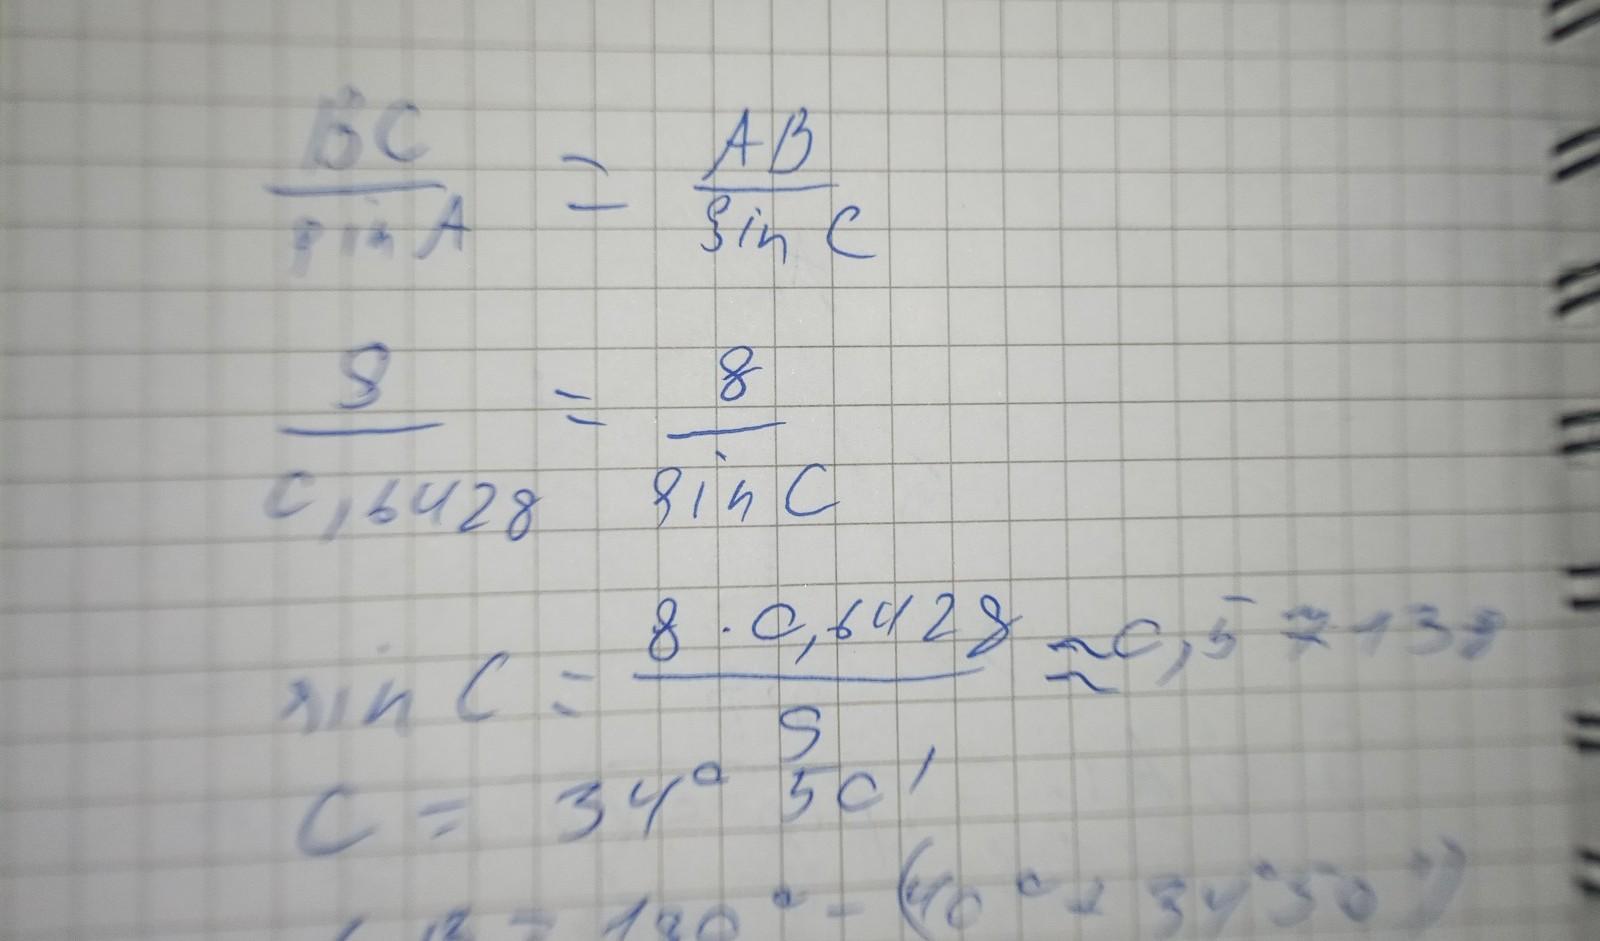 BC/sin A = AB/sin C
9/0,6428 = 8/sin C
sin C = 8 · 0,6428/9 ≈ 0,57138
C = 34° 50'
= 180° - (40° + 34°50')